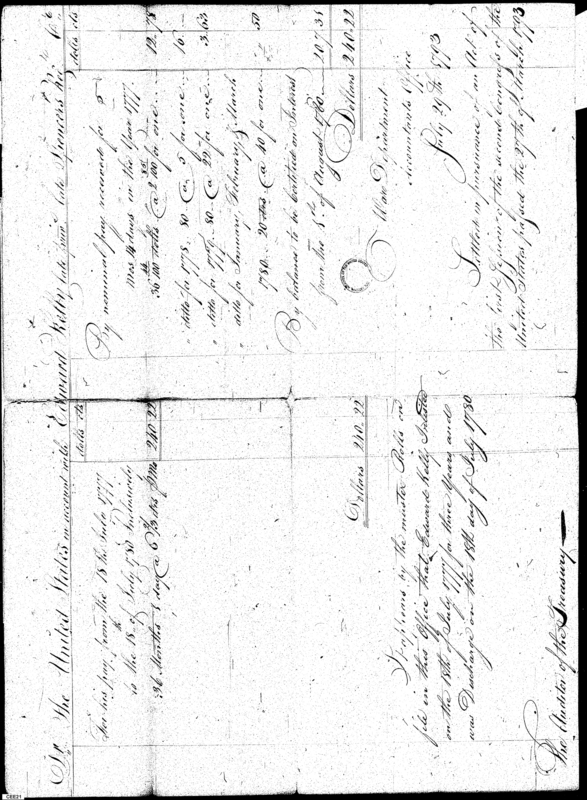 Dr. The United States in account with Edward Kelly late
dolls cts
For his pay from the 18th July 1777
to the 18th of July 1780 Inclusive
36 Months 1 day @ 6 dolls 240.22
Dollars 240.22
It appears by the muster Rolls on
file in this Office that Edward Kelly Inlisted
on the 18th of July 1777 for three Years and
was Discharge on the 18th day of July 1780
The Auditor of the Treasury
dolls cts
By nominal pay received for 5
Mos days in the Year 1777
for one 12.
ditto for 1778. 80 @ 5 for one 16.
ditto for 1779. 80 @ 22 for one 3.63
ditto for January February & March
1780. 20 @ 40 for one .50
By balance to be Certified on Interest
from the of August 1780 207.35
Dollars 240.22
War Department
Accountants Office
July 29th 1793
Settled in pursuance of an Act of
the last Session of the second Congress of the
United States passed the 27th of March 1793